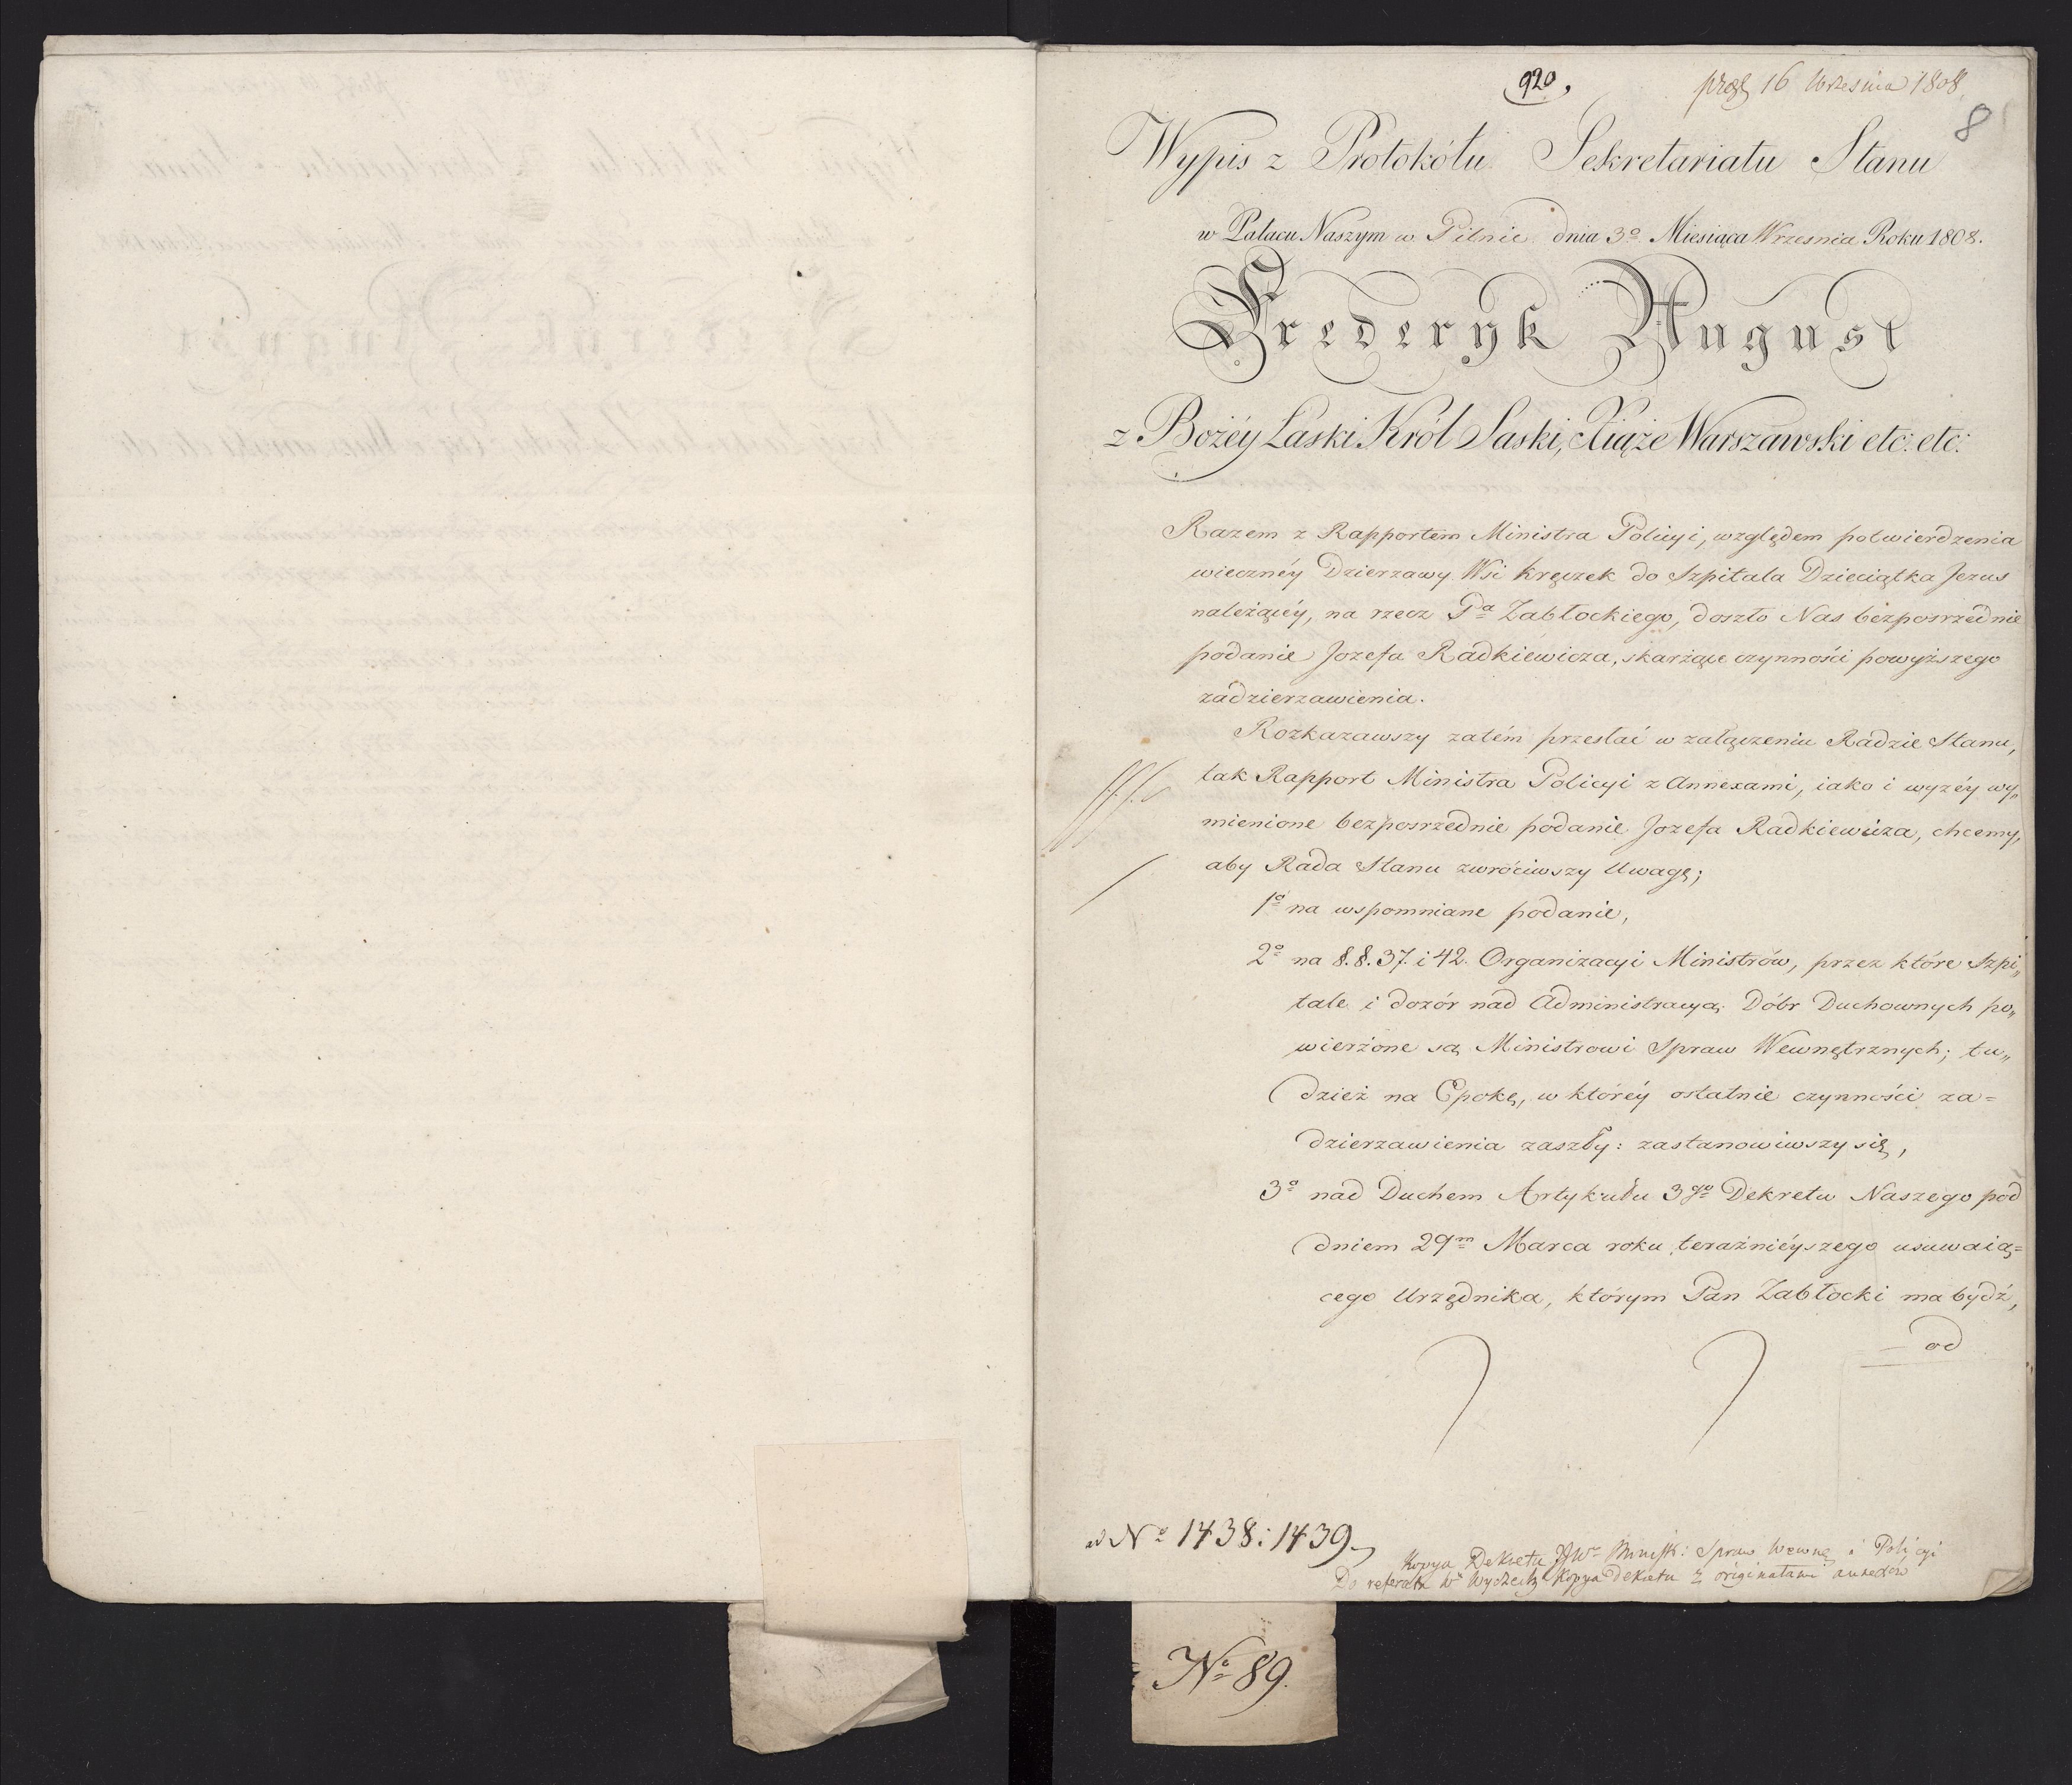 920.
16 Wrzesnia 1808
8
Wypis z Protokółu Sekretariatu Stanu
w Pałacu Naszym w Pilnic dnia 3º Miesiąca Wrzesnia Roku 1808.
Frederyk August
z Bożéy Łaski Król Saski, Xiąże Warszawski etc: etc:
Razem z Rapportem Ministra Policyi, względem potwierdzenia
wiecznéy Dzierzawy Wsi Kręczek do Szpitala Dzieciątka Jezus
należącéy, na rzecz Pª Zabłockiego, doszło Nas bezposrzednie
podanie Jozefa Radkiewicza, skarżące czynności powyższego
zadzierzawienia.
Rozkazawszy zatém przesłać w załączeniu Radzie Stanu,
tak Rapport Ministra Policyi z Annexami, iako i wyzéy wy„
mienione bezposrzednie podanie Jozefa Radkiewicza, chcemy,
aby Rada Stanu zwróciwszy Uwagę;
1º na wspomniane podanie,
2º na §.§. 37. i 42. Organizacyi Ministrów, przez które Szpi„
tale i dozór nad Administracyą Dóbr Duchownych po„
wierzone są Ministrowi Spraw Wewnętrznych; tu„
dzież na Epokę, w któréy ostatnie czynności za=
dzierzawienia zaszły: zastanowiwszy się,
3º nad Duchem Artykułu 3go Dekretu Naszego pod
dniem 29m Marca roku teraźnieyszego usuwaią=
cego Urzędnika, którym Pan Zabłocki ma bydź,
od
ad Nº 1438: 1439
Kopya Dekretu JJWW Ministr: Spraw Wewnę i Policyi
Do referatu Wº Kopya Dekretu z originałami annexów
Nº 89.